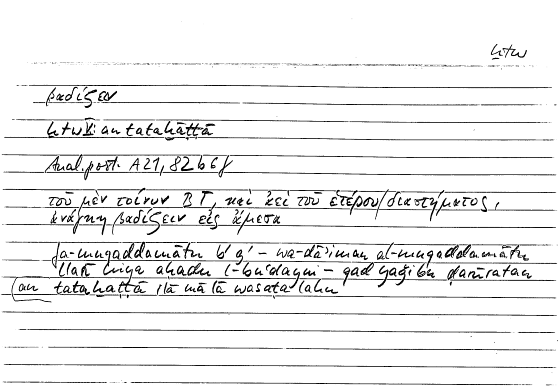 ḫṭw
βαδίζειν
ḫṭw V: an tataḫaṭṭā
Anal. post. A 21, 82 b 6 f
τοῦ μὲν τοίνυν Β Γ, καὶ ἀεὶ τοῦ ἑτέρου / διαστήματος,
ἀνάγκη βαδίζειν εἰς ἄμεσα
fa-muqaddamātu b' g' – wa-dā'iman al-muqaddamātu
llatī hiya aḥadu l-bu'dayni – qad yaǧibu ḍarūratan
(an tataḫaṭṭā ilā mā lā wasaṭa lahu